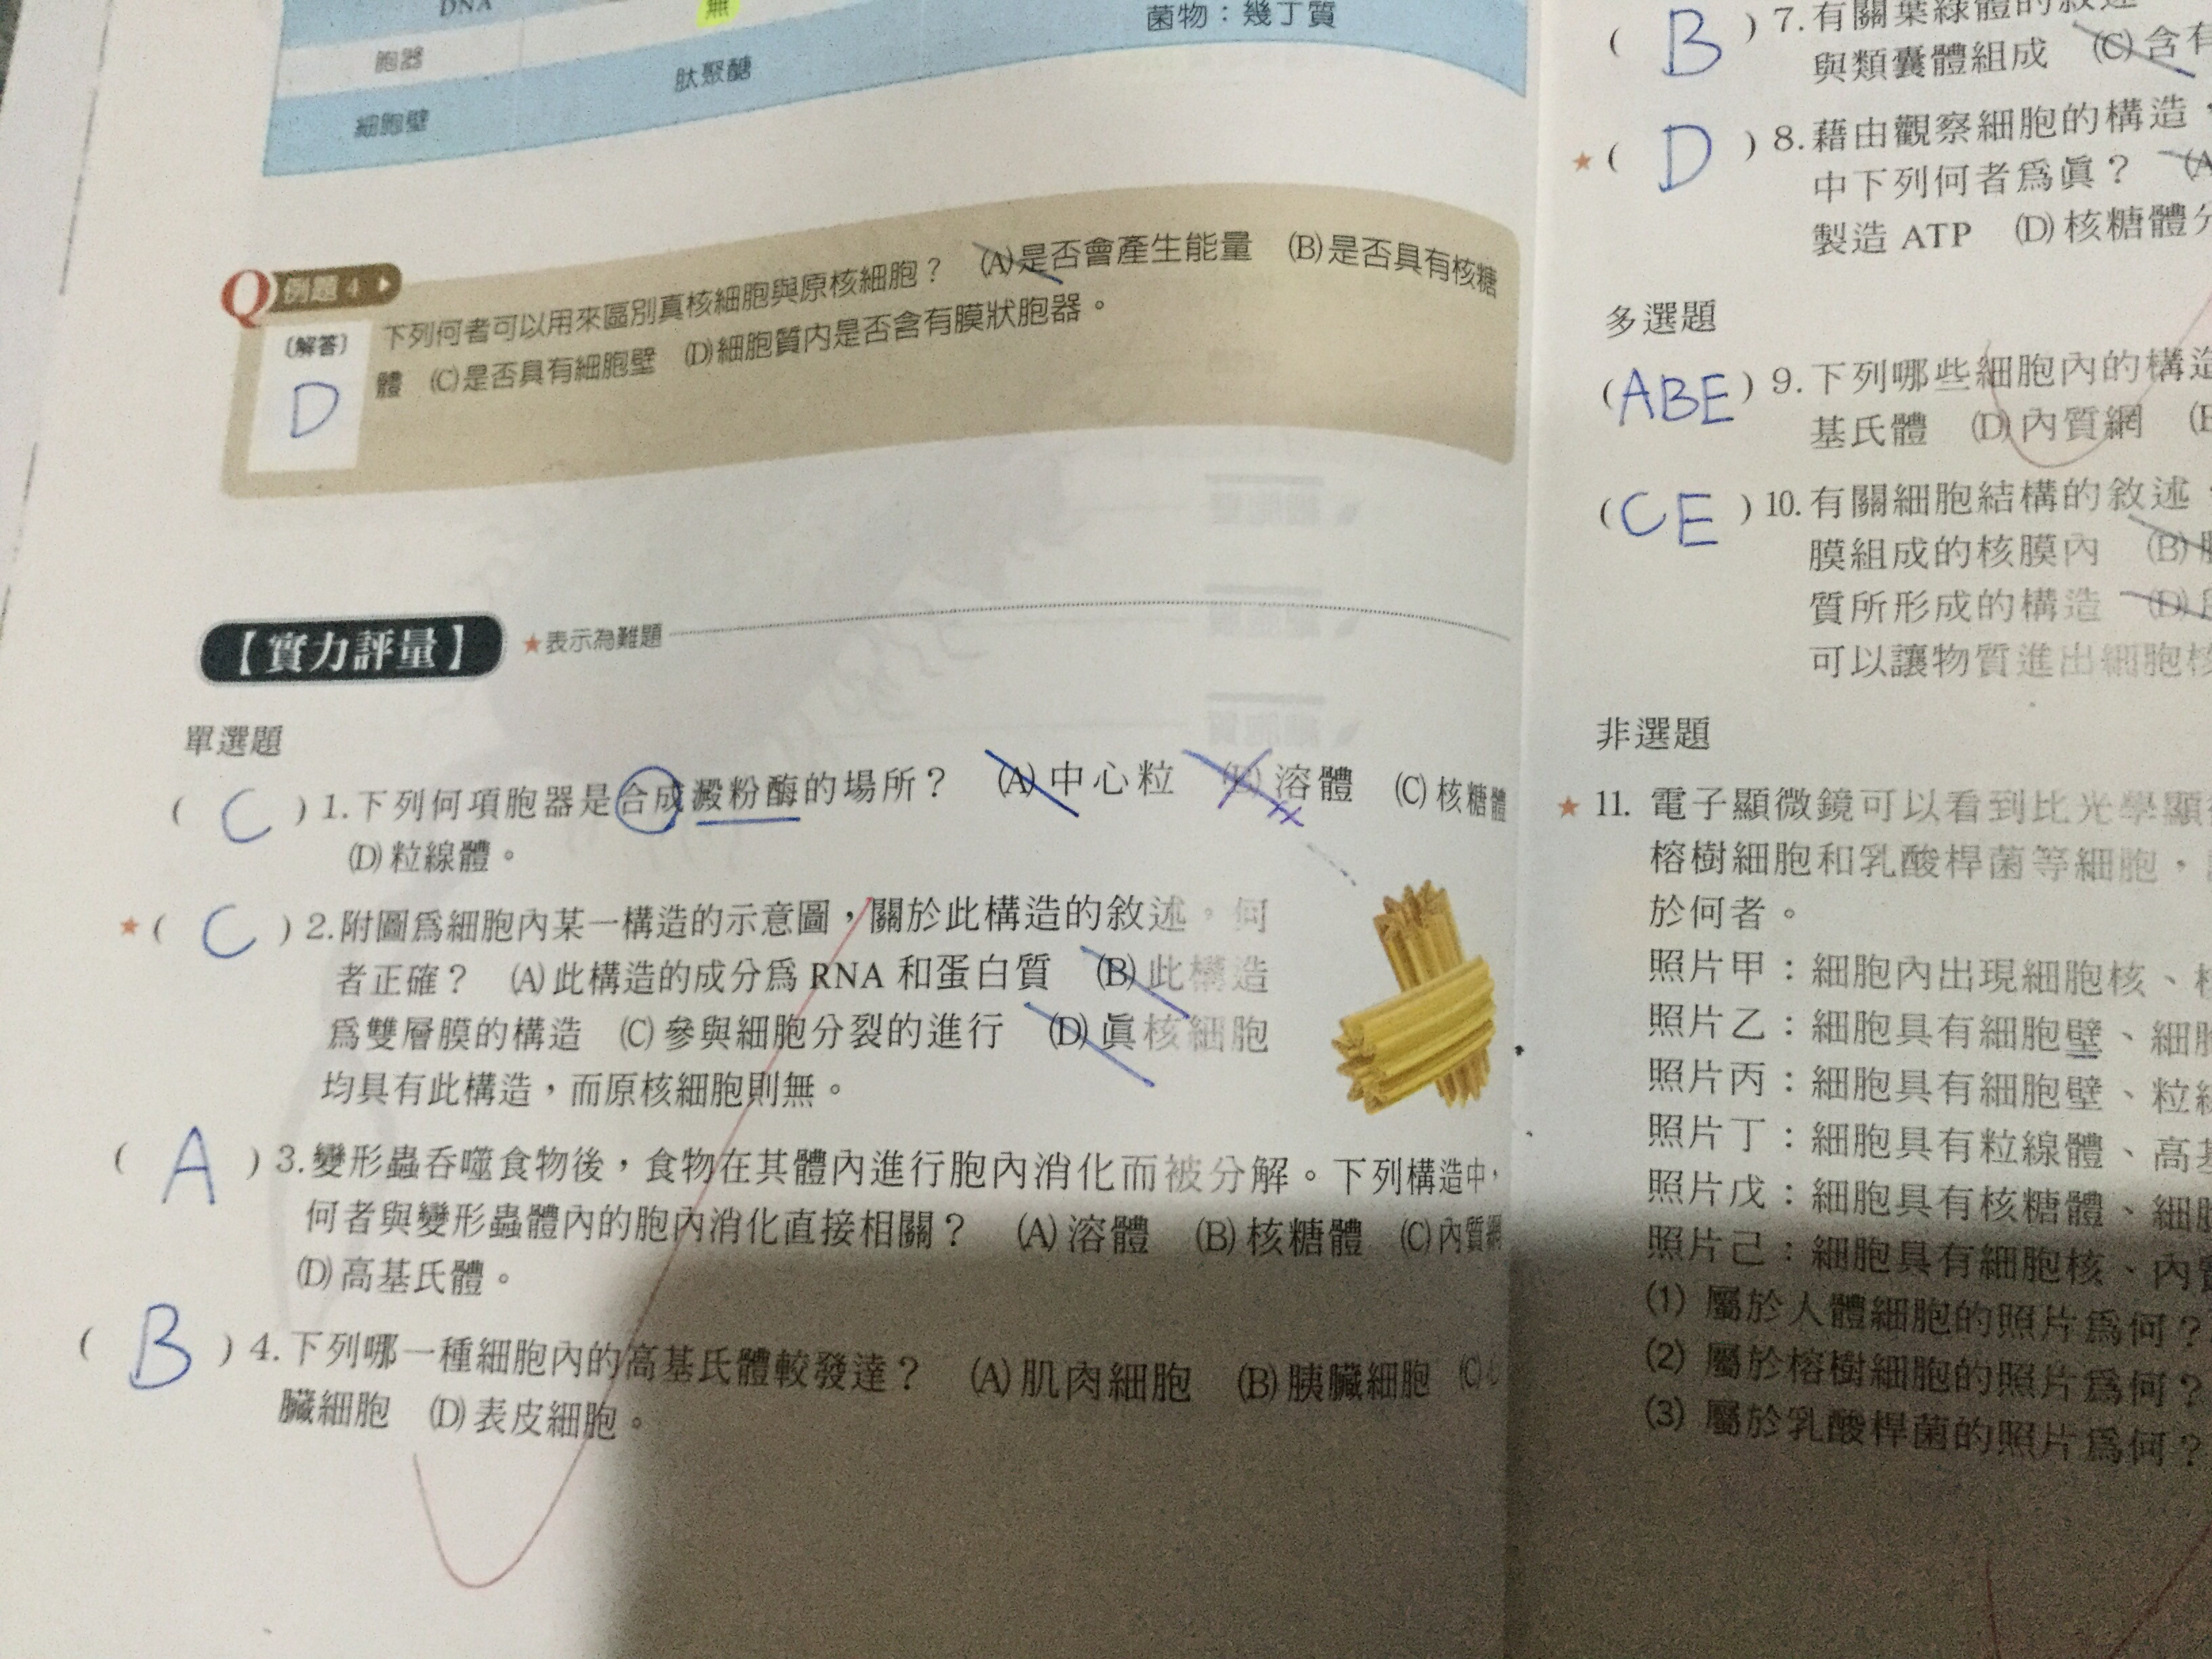 DNA
無
菌物：幾丁質
胞器
細胞壁
肽聚醣
Q 例題 4
〔解答〕
D
下列何者可以用來區別真核細胞與原核細胞？ (A)是否會產生能量 (B)是否具有核糖
體 (C)是否具有細胞壁 (D)細胞質內是否含有膜狀胞器。
【實力評量】 ★表示為難題
單選題
( C ) 1.下列何項胞器是合成澱粉酶的場所？ (A)中心粒 (B)溶體 (C)核糖體
(D)粒線體。
★( C ) 2.附圖為細胞內某一構造的示意圖，關於此構造的敘述，何
者正確？ (A)此構造的成分為 RNA 和蛋白質 (B)此構造
為雙層膜的構造 (C)參與細胞分裂的進行 (D)真核細胞
均具有此構造，而原核細胞則無。
( A ) 3.變形蟲吞噬食物後，食物在其體內進行胞內消化而被分解。下列構造中，
何者與變形蟲體內的胞內消化直接相關？ (A)溶體 (B)核糖體 (C)內質網
(D)高基氏體。
( B ) 4.下列哪一種細胞內的高基氏體較發達？ (A)肌肉細胞 (B)胰臟細胞 (C)心
臟細胞 (D)表皮細胞。
( B ) 7.有關葉綠體的敘述
與類囊體組成 (C)含有
★( D ) 8.藉由觀察細胞的構造，
中下列何者為真？ (A
製造 ATP (D)核糖體分
多選題
(ABE) 9.下列哪些細胞內的構造
基氏體 (D)內質網 (E
(CE) 10.有關細胞結構的敘述，
膜組成的核膜內 (B)
質所形成的構造 (D)
可以讓物質進出細胞核
非選題
★ 11. 電子顯微鏡可以看到比光學顯微
榕樹細胞和乳酸桿菌等細胞，
於何者。
照片甲：細胞內出現細胞核、
照片乙：細胞具有細胞壁、細胞
照片丙：細胞具有細胞壁、粒線
照片丁：細胞具有粒線體、高基
照片戊：細胞具有核糖體、細胞
照片己：細胞具有細胞核、內質
(1) 屬於人體細胞的照片為何？
(2) 屬於榕樹細胞的照片為何？
(3) 屬於乳酸桿菌的照片為何？